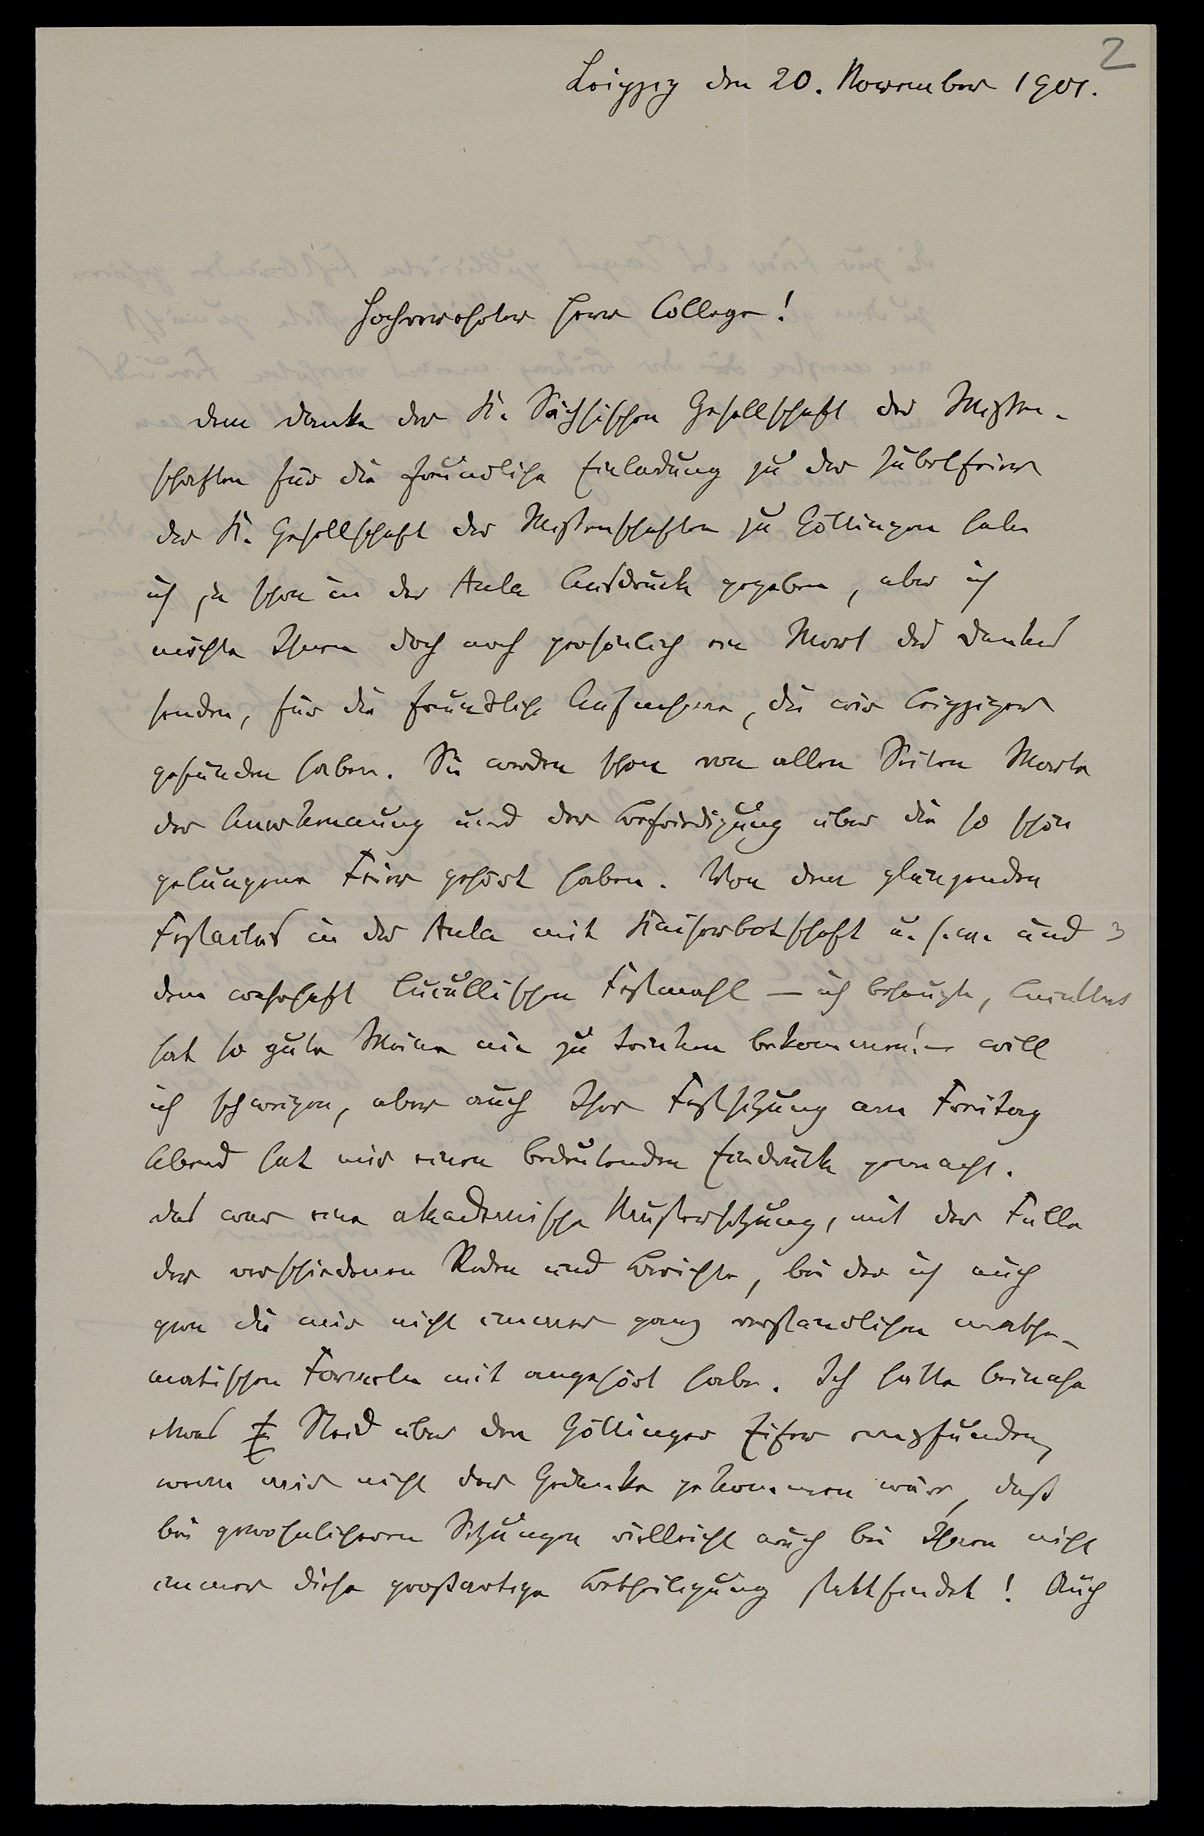 2
Leipzig den 20. November 1901.
Hochverehrter Herr College!
Dem Danke der K. Sächsischen Gesellschaft der Wissen-
schaften für die freundliche Einladung zu der Jubelfeier
der K. Gesellschaft der Wissenschaften zu Göttingen habe
ich ja schon in der Aula Ausdruck gegeben, aber ich
möchte Ihnen doch noch persönlich ein Wort des Dankes
senden, für die freundliche Aufnahme, die wir Leipziger
gefunden haben. Sie werden schon von allen Seiten Worte
der Anerkennung und der Befriedigung über die so schön
gelungene Feier gehört haben. Von dem glänzenden
Festactus in der Aula mit Kaiserbotschaft u. s. w. und
dem wahrhaft lucullischen Festmahl – ich bezeuge, Lucullus
hat so gute Weine nie zu trinken bekommen! – will
ich schweigen, aber auch Ihre Festsitzung am Freitag
Abend hat mir einen bedeutenden Eindruck gemacht.
Das war eine akademische Mustersitzung, mit der Fülle
der verschiedenen Reden und Berichte, bei der ich auch
gern die mir nicht immer ganz verständlichen mathe-
matischen Formeln mit angehört habe. Ich hätte beinahe
etwas Neid über den Göttinger Eifer empfunden,
wenn mir nicht der Gedanke gekommen wäre, daß
bei gewöhnlicheren Sitzungen vielleicht auch bei Ihnen nicht
immer diese großartige Betheiligung stattfindet! Auch